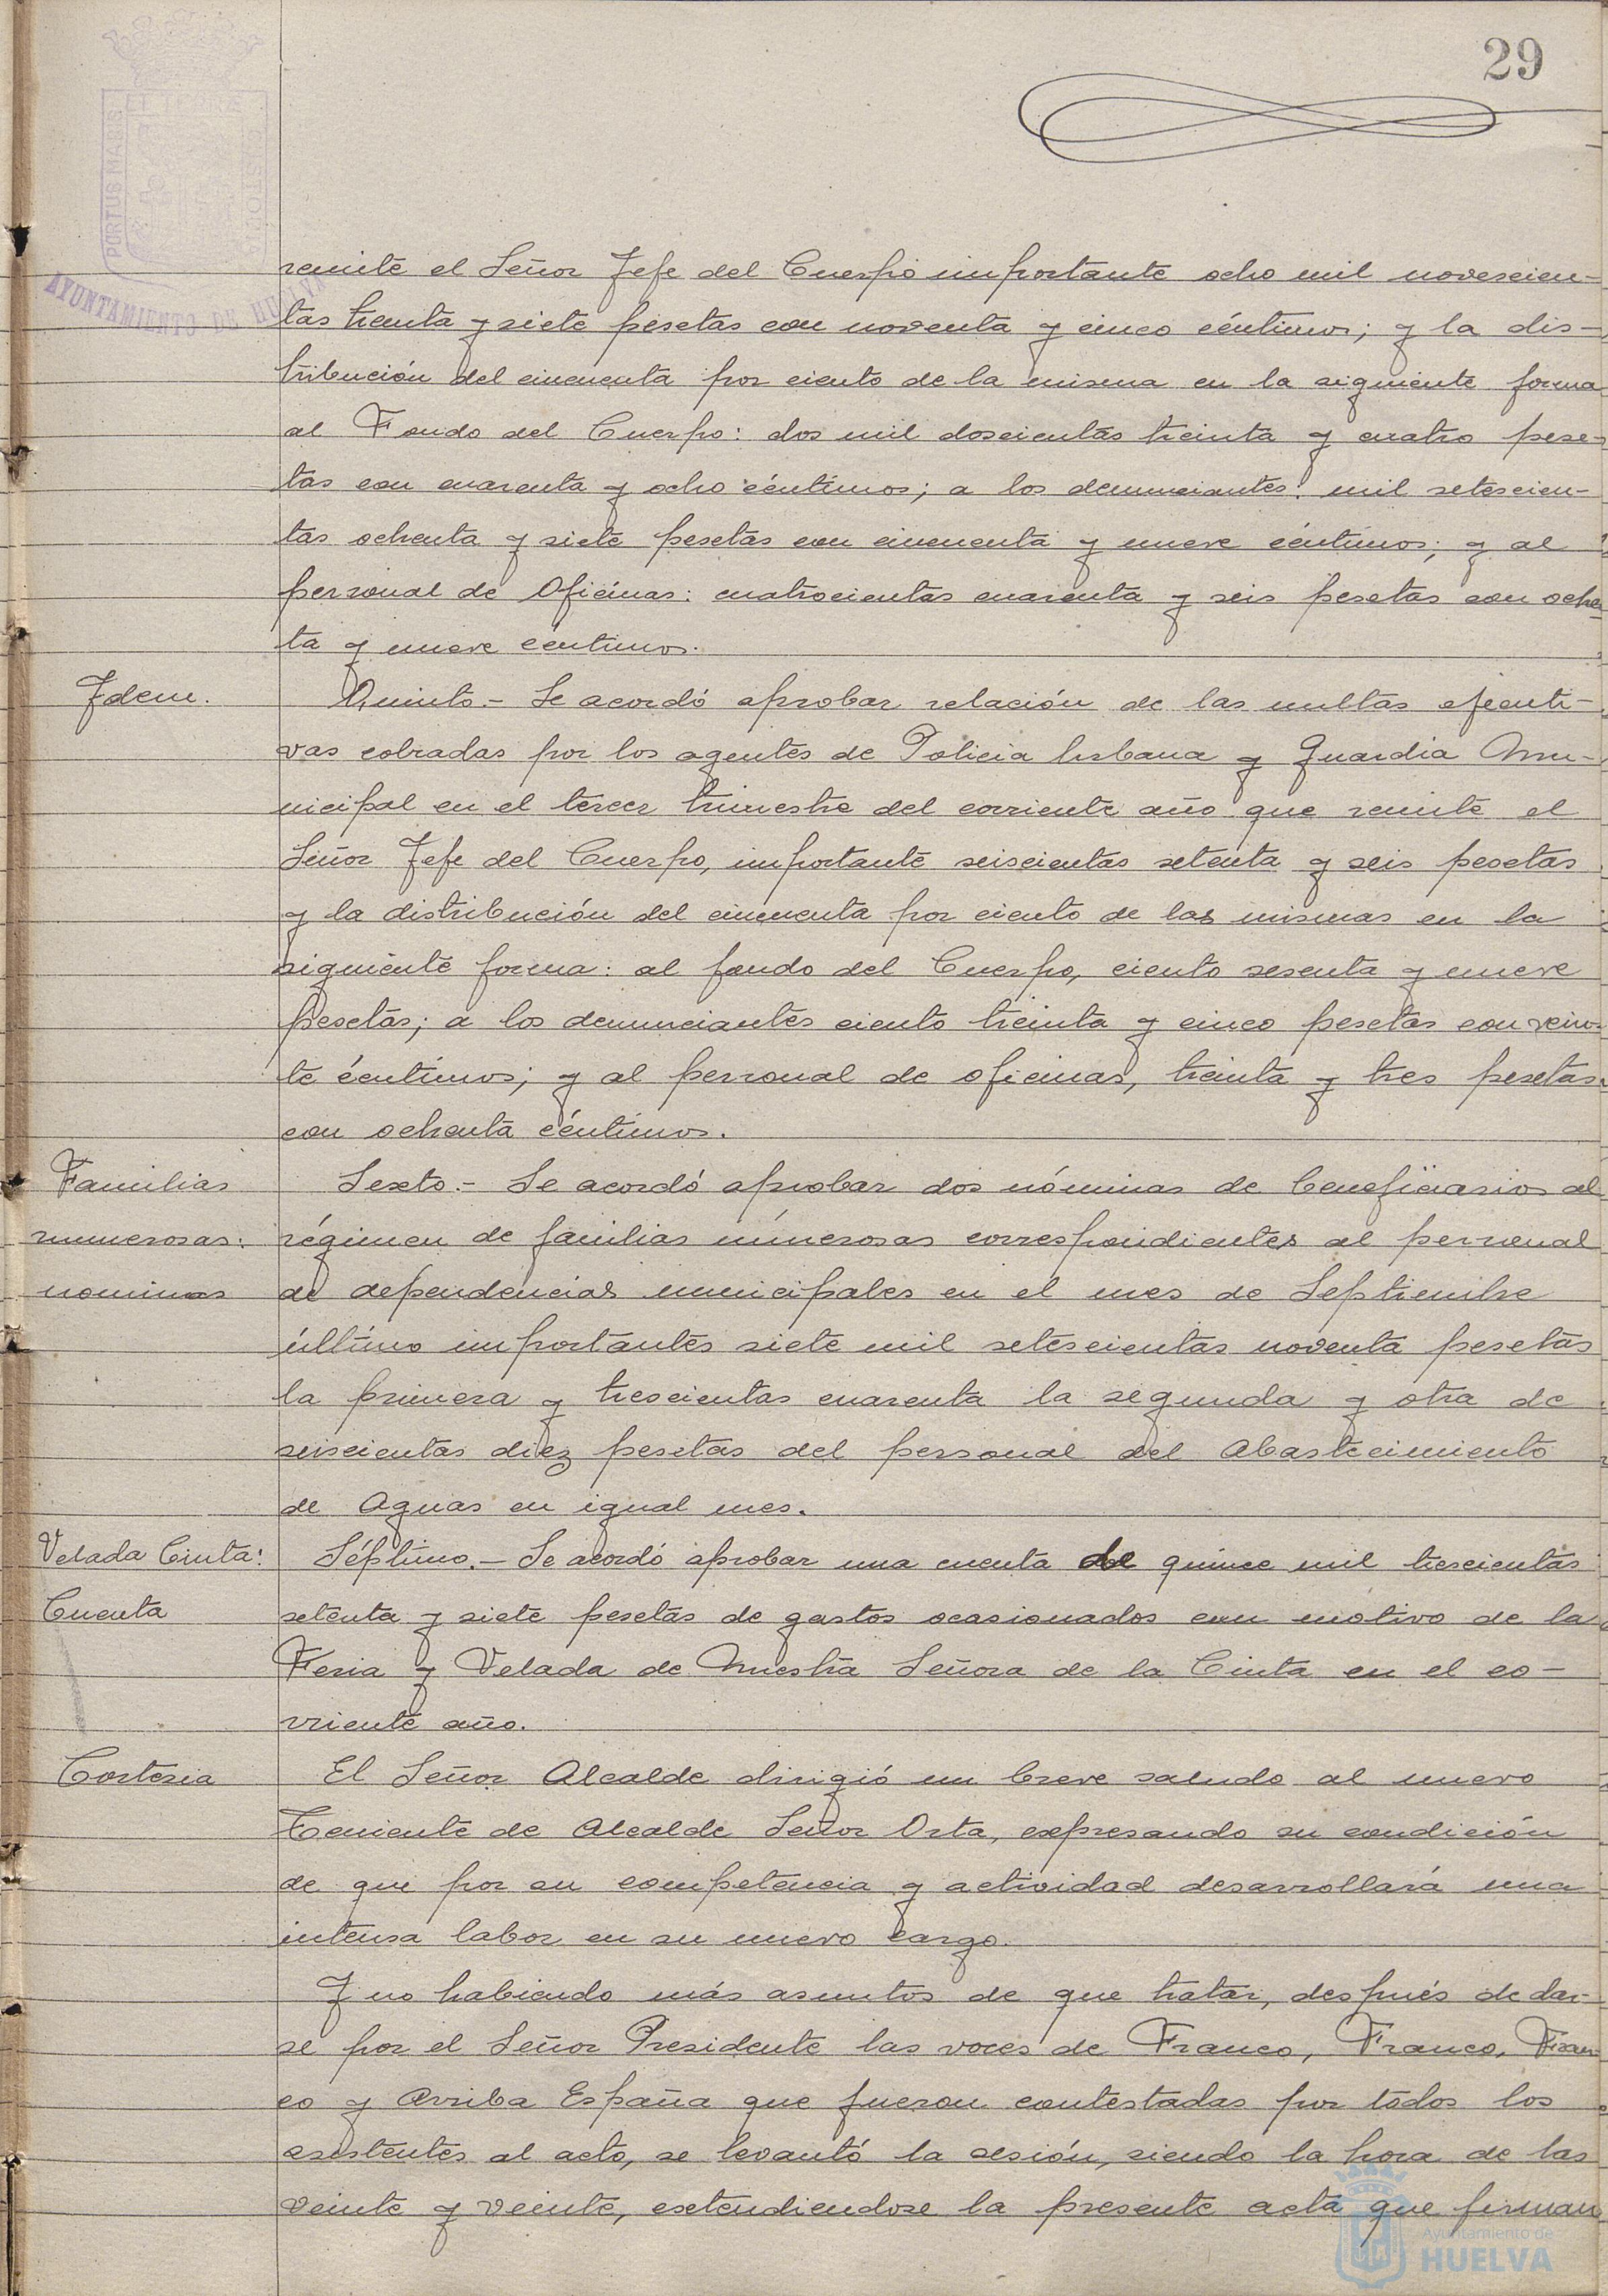 29
PORTUS MARIS
ET TERRE
CUSTODIA
AYUNTAMIENTO DE HUELVA
remite el Señor Jefe del Cuerpo importante ocho mil novescien-
tas treinta y siete pesetas con noventa y cinco céntimos; y la dis-
tribución del cincuenta por ciento de la misma en la siguiente forma
al Fondo del Cuerpo: dos mil doscientas treinta y cuatro pese-
tas con cuarenta y ocho céntimos; a los denunciantes: mil setescien-
tas ochenta y siete pesetas con cincuenta y nueve céntimos; y al
personal de Oficinas: cuatrocientas cuarenta y seis pesetas con ochen-
ta y nueve céntimos.
Idem.
Quinto.- Se acordó aprobar relación de las multas ejecuti-
vas cobradas por los agentes de Policia Urbana y Guardia Mu-
nicipal en el tercer trimestre del corriente año que remite el
Señor Jefe del Cuerpo, importante seiscientas setenta y seis pesetas
y la distribución del cincuenta por ciento de las mismas en la
siguiente forma: al fondo del Cuerpo, ciento sesenta y nueve
pesetas; a los denunciantes ciento treinta y cinco pesetas con vein-
te céntimos; y al personal de oficinas, treinta y tres pesetas
con ochenta céntimos.
Familias
numerosas:
nominas
Sexto.- Se acordó aprobar dos nóminas de beneficiarios al
régimen de familias númerosas correspondientes al personal
de dependencias municipales en el mes de Septiembre
último importantes siete mil setescientas noventa pesetas
la primera y trescientas cuarenta la segunda y otra de
seiscientas diez pesetas del personal del Abastecimiento
de Aguas en igual mes.
Velada Cinta:
Cuenta
Séptimo.- Se acordó aprobar una cuenta de quince mil trescientas
setenta y siete pesetas de gastos ocasionados con motivo de la
Feria y Velada de Nuestra Señora de la Cinta en el co-
rriente año.
Cortesia
El Señor Alcalde dirigió un breve saludo al nuevo
Teniente de Alcalde Señor Orta, expresando su condición
de que por su competencia y actividad desarrollará una
intensa labor en su nuevo cargo.
Y no habiendo más asuntos de que tratar, después de dar-
se por el Señor Presidente las voces de Franco, Franco, Fran-
co y Arriba España que fueron contestadas por todos los
asistentes al acto, se levantó la sesión, siendo la hora de las
veinte y veinte, extendiendose la presente acta que firman
Ayuntamiento de
HUELVA